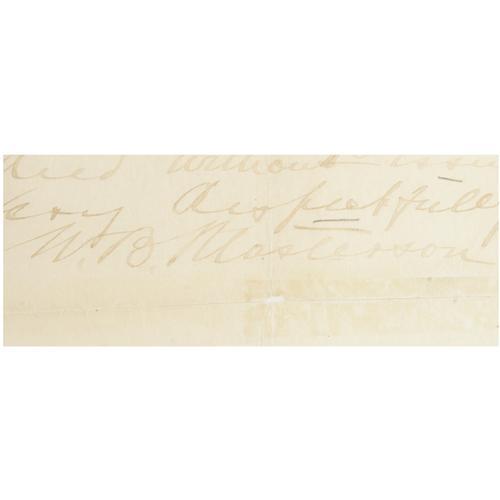 died without issue
Very Respectfully
W. B. Masterson